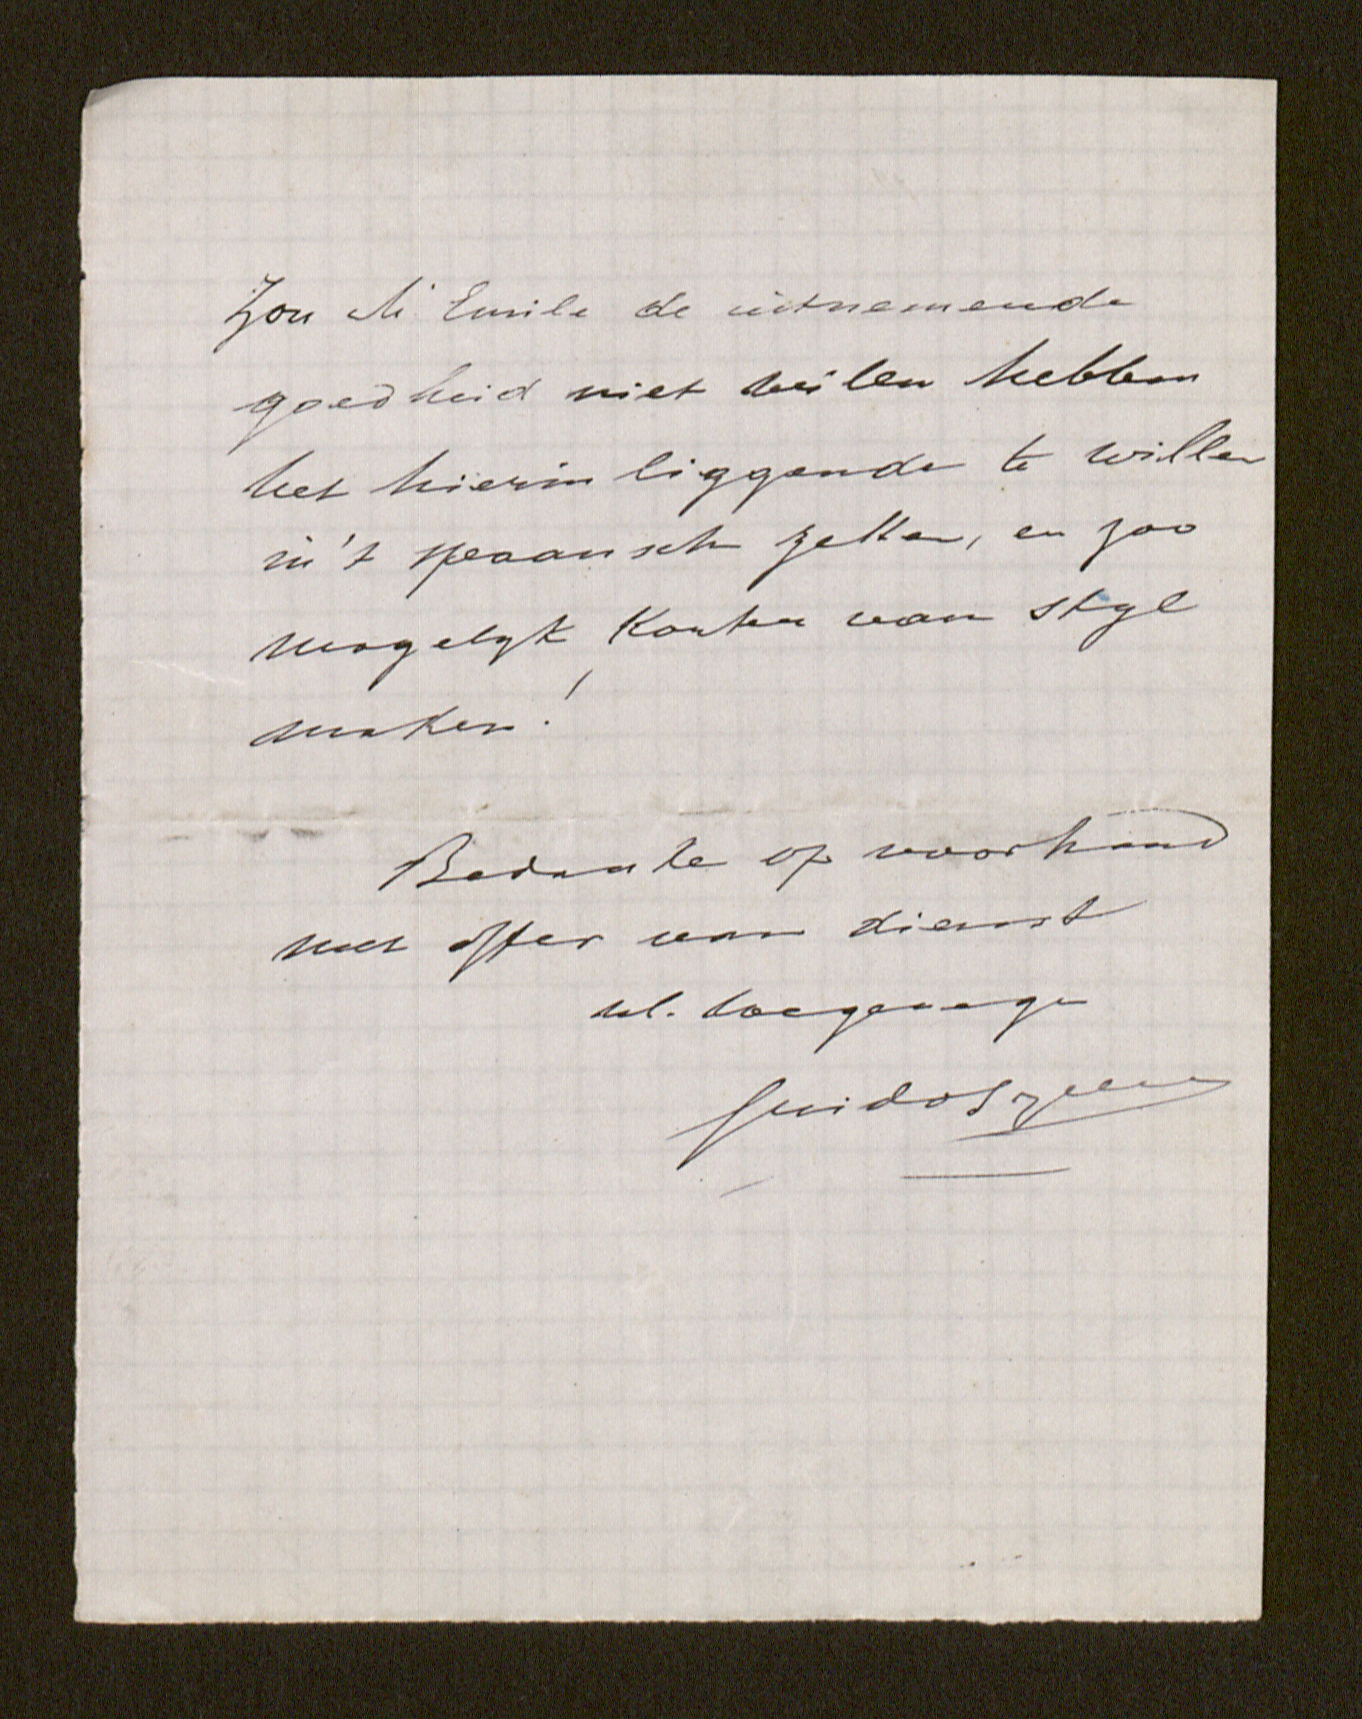 Zou M. Emile de uitnemende
goedheid niet wilen hebben
het hierin liggende te willen
in 't spaansch zetten, en zoo
mogelyk korter van styl
maken!
Bedankte op voorhand
met offer van dienst
Ul. toegenegen